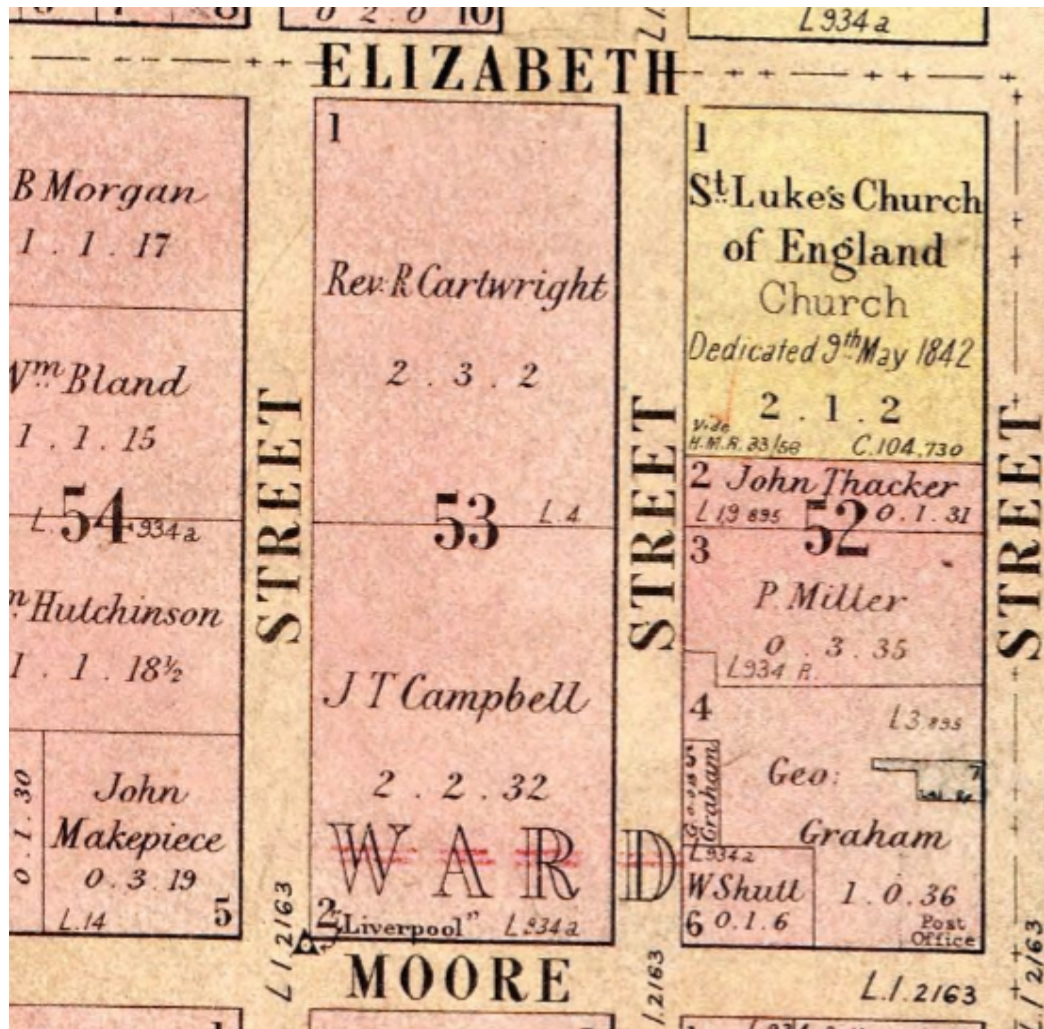 0 2 0 10
L934a
ELIZABETH
B Morgan
1 . 1 . 17
Wm Bland
1 . 1 . 15
L. 934a
54
Hutchinson
1 . 1 . 18½
0.1.30
John
Makepiece
0 . 3 . 19
L.14
5
STREET
L1.2163
1
Rev. R Cartwright
2 . 3 . 2
53
L.4
J T Campbell
2 . 2 . 32
WARD
2
"Liverpool"
L934a
STREET
1.2163
1
St. Luke's Church
of England
Church
Dedicated 9th May 1842
2 . 1 . 2
Vide
H.M.R. 33/58
C.104,730
2 John Thacker
L 19 895
0 . 1 . 31
52
3
P. Miller
0 . 3 . 35
L934 R.
4
L3 895
Geo:
Graham
1 . 0 . 36
Post
Office
Graham
L934a
W Shutt
6 0.1.6
7
STREET
L1 2163
MOORE
L.1.2163